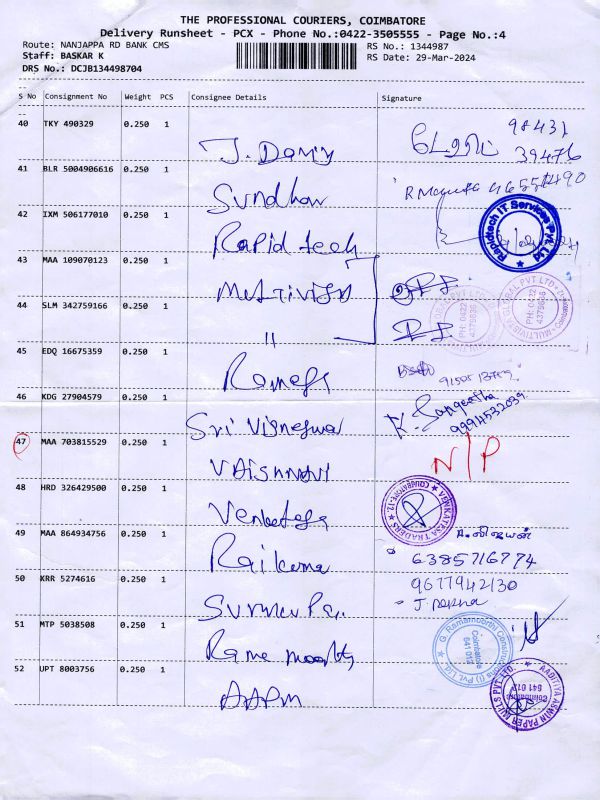 THE PROFESSIONAL COURIERS, COIMBATORE
Delivery Runsheet - PCX - Phone No.:0422-3505555 - Page No.:4
Route: NANJAPPA RD BANK CMS RS No.: 1344987
Staff: BASKAR K RS Date: 29-Mar-2024
DRS No.: DCJB134498704
S No Consignment No Weight PCS Consignee Details Signature
40 TKY 490329 0.250 1 98431
J. Davy 39476
41 BLR 5004906616 0.250 1
Sundhar
42 IXM 506177010 0.250 1 Rapidtech IT Services Pvt. Ltd
Rapid tech
43 MAA 109070123 0.250 1
MULTIVISTA
44 SLM 342759166 0.250 1 PH: 0422 4375636 MULTIVISTA GLOBAL PVT LTD
"
45 EDQ 16675359 0.250 1
Ramesh
46 KDG 27904579 0.250 1 K. Sangeetha
Sri Vigneswar 9994532039
47 MAA 703815529 0.250 1 N/P
VAISHNAVI
48 HRD 326429500 0.250 1 VENKATESA TRADERS COIMBATORE-12
Venkatesa
49 MAA 864934756 0.250 1
Rajkumar 6385716774
50 KRR 5274616 0.250 1 9677942130
51 MTP 5038508 0.250 1 G. Ramamoorthi Constructions (I) Pvt. Ltd. Coimbatore 641 012
Rama moorthy
52 UPT 8003756 0.250 1 AADITYA ASWIN PAPER MILLS PVT. LTD. Coimbatore 641 012
AAPM